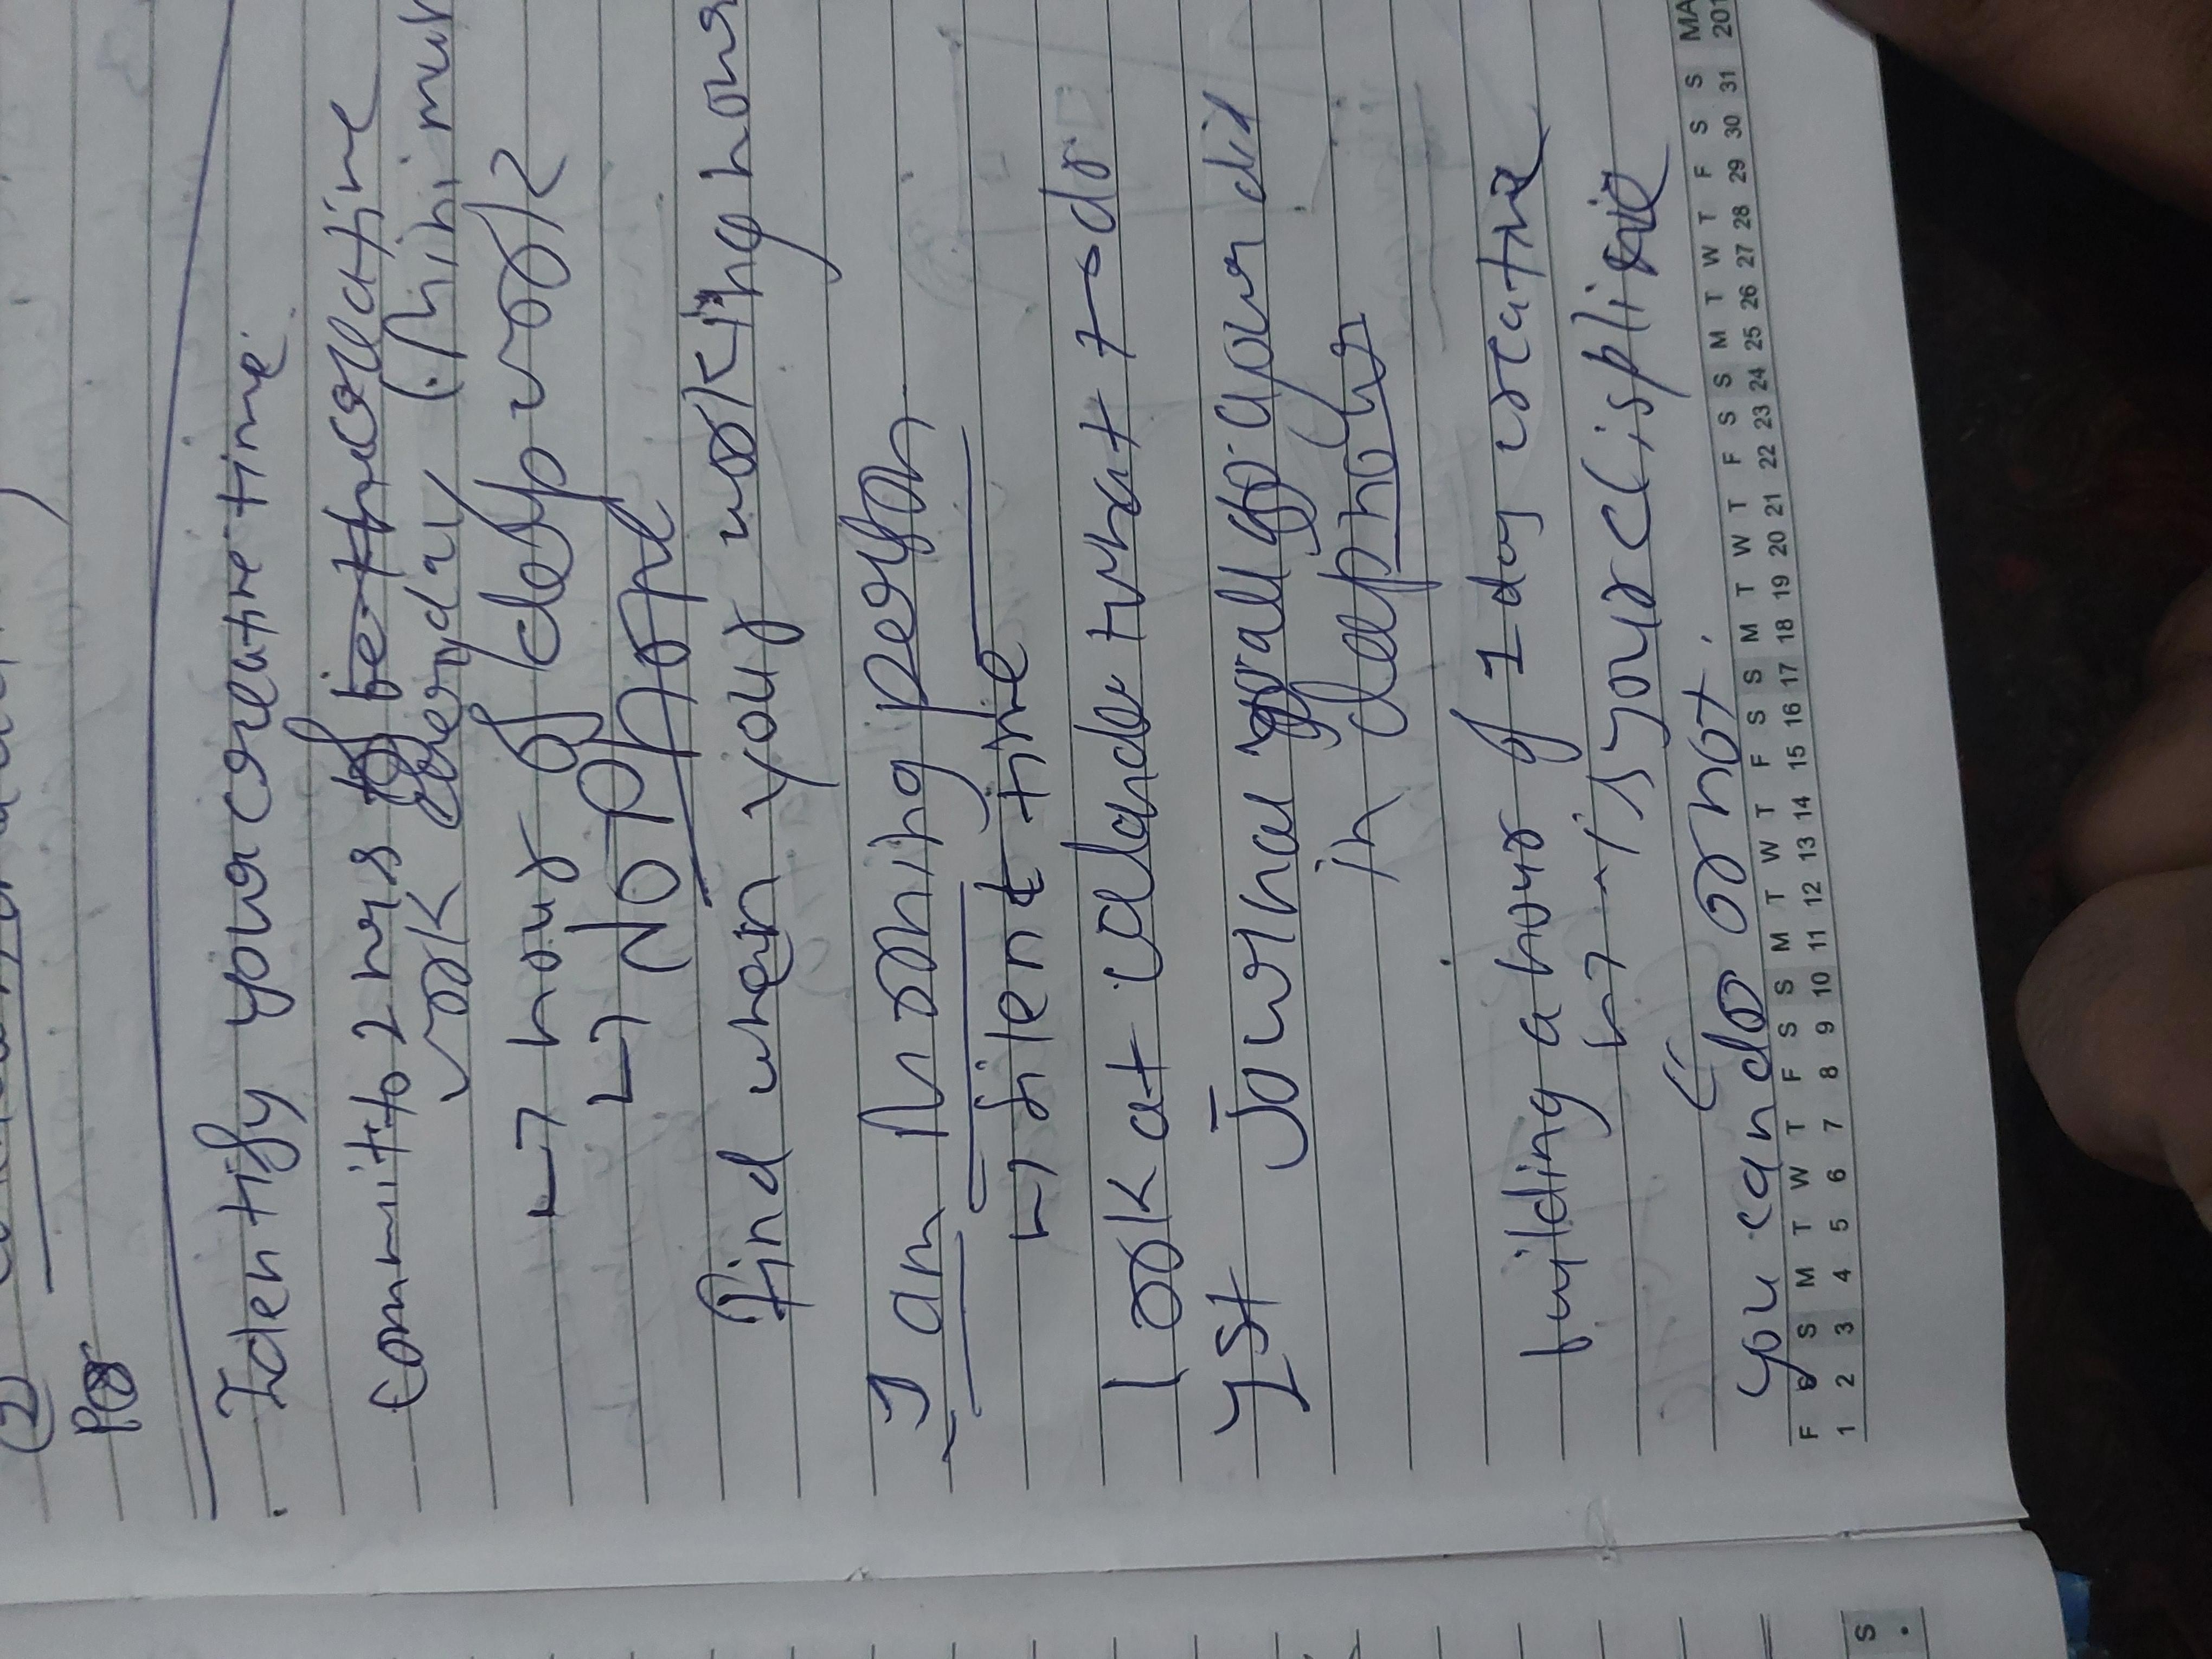 2
Identify your creative time.
Commit to 2 hrs of be the creative
work everyday (minimum
↳ hour of deep work
↳ NO Phone
Find when your working hour
I am Morning person
↳ silent time
look at calander what to do
1st Journal your did
in deep
building a hour of 1 day creative
↳ is your clisplinie
you can do or not.
F S S M T W T F S S M T W T F S S M T W T F S S M T W T F S S MA
1 2 3 4 5 6 7 8 9 10 11 12 13 14 15 16 17 18 19 20 21 22 23 24 25 26 27 28 29 30 31 201
S